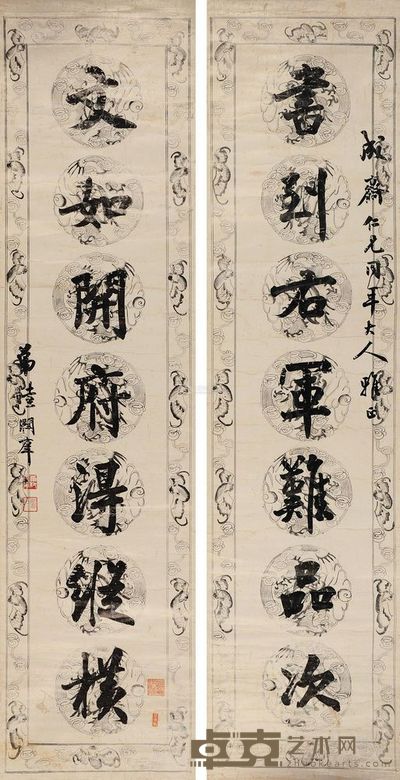 成齋仁兄同年大人雅正
書到右軍難品次
文如開府得縱橫
弟陸潤庠
卓克艺术网